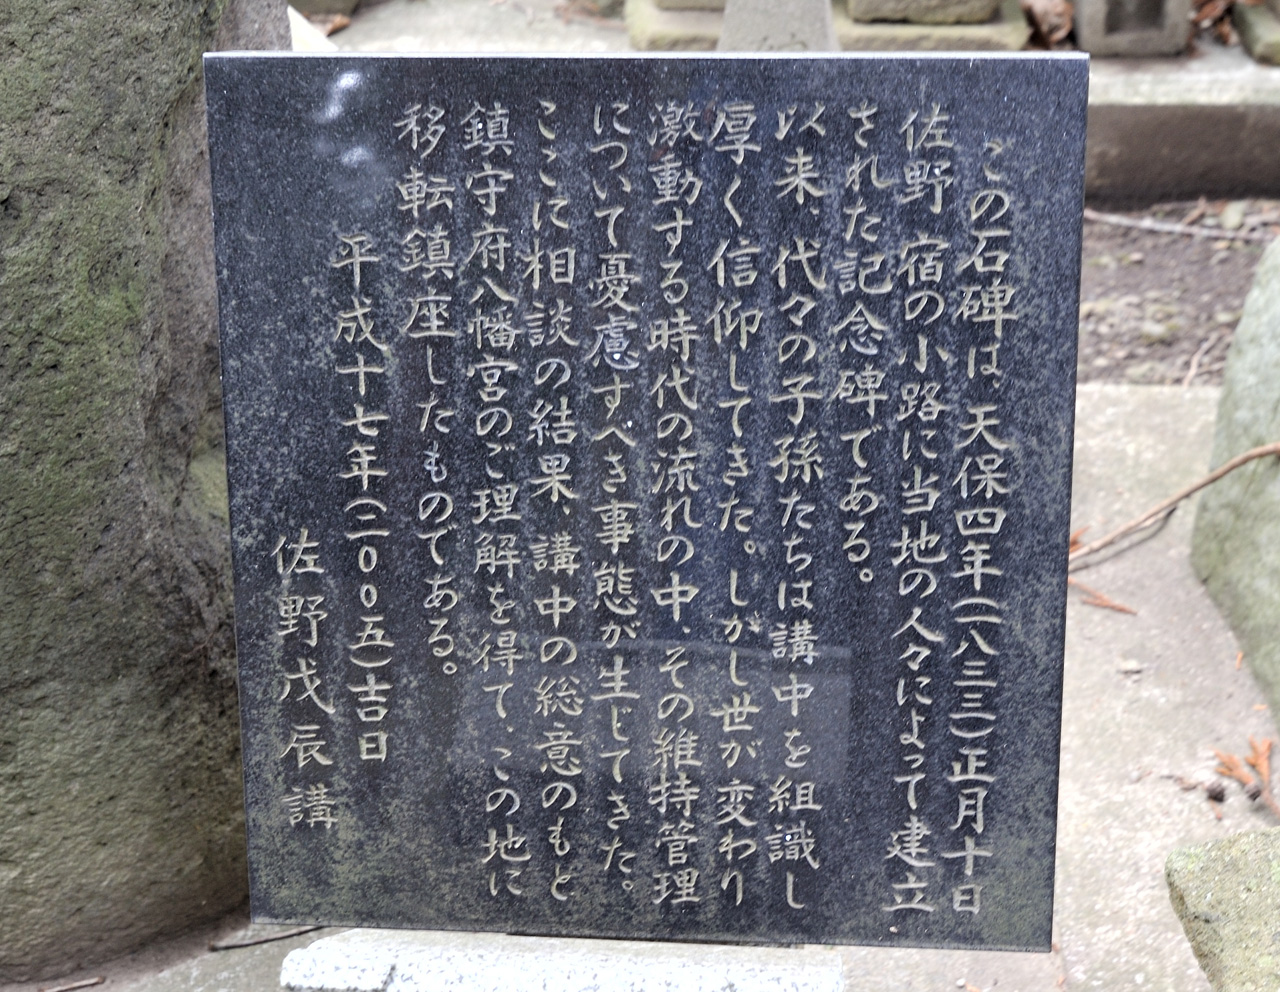 この石碑は、天保四年(一八三三)正月十日
佐野宿の小路に当地の人々によって建立
された記念碑である。
以来、代々の子孫たちは講中を組識し
厚く信仰してきた。しかし世が変わり
激動する時代の流れの中、その維持管理
について憂慮すべき事態が生じてきた。
ここに相談の結果、講中の総意のもと
鎮守府八幡宮のご理解を得て、この地に
移転鎮座したものである。
平成十七年(二〇〇五)吉日
佐野戊辰講